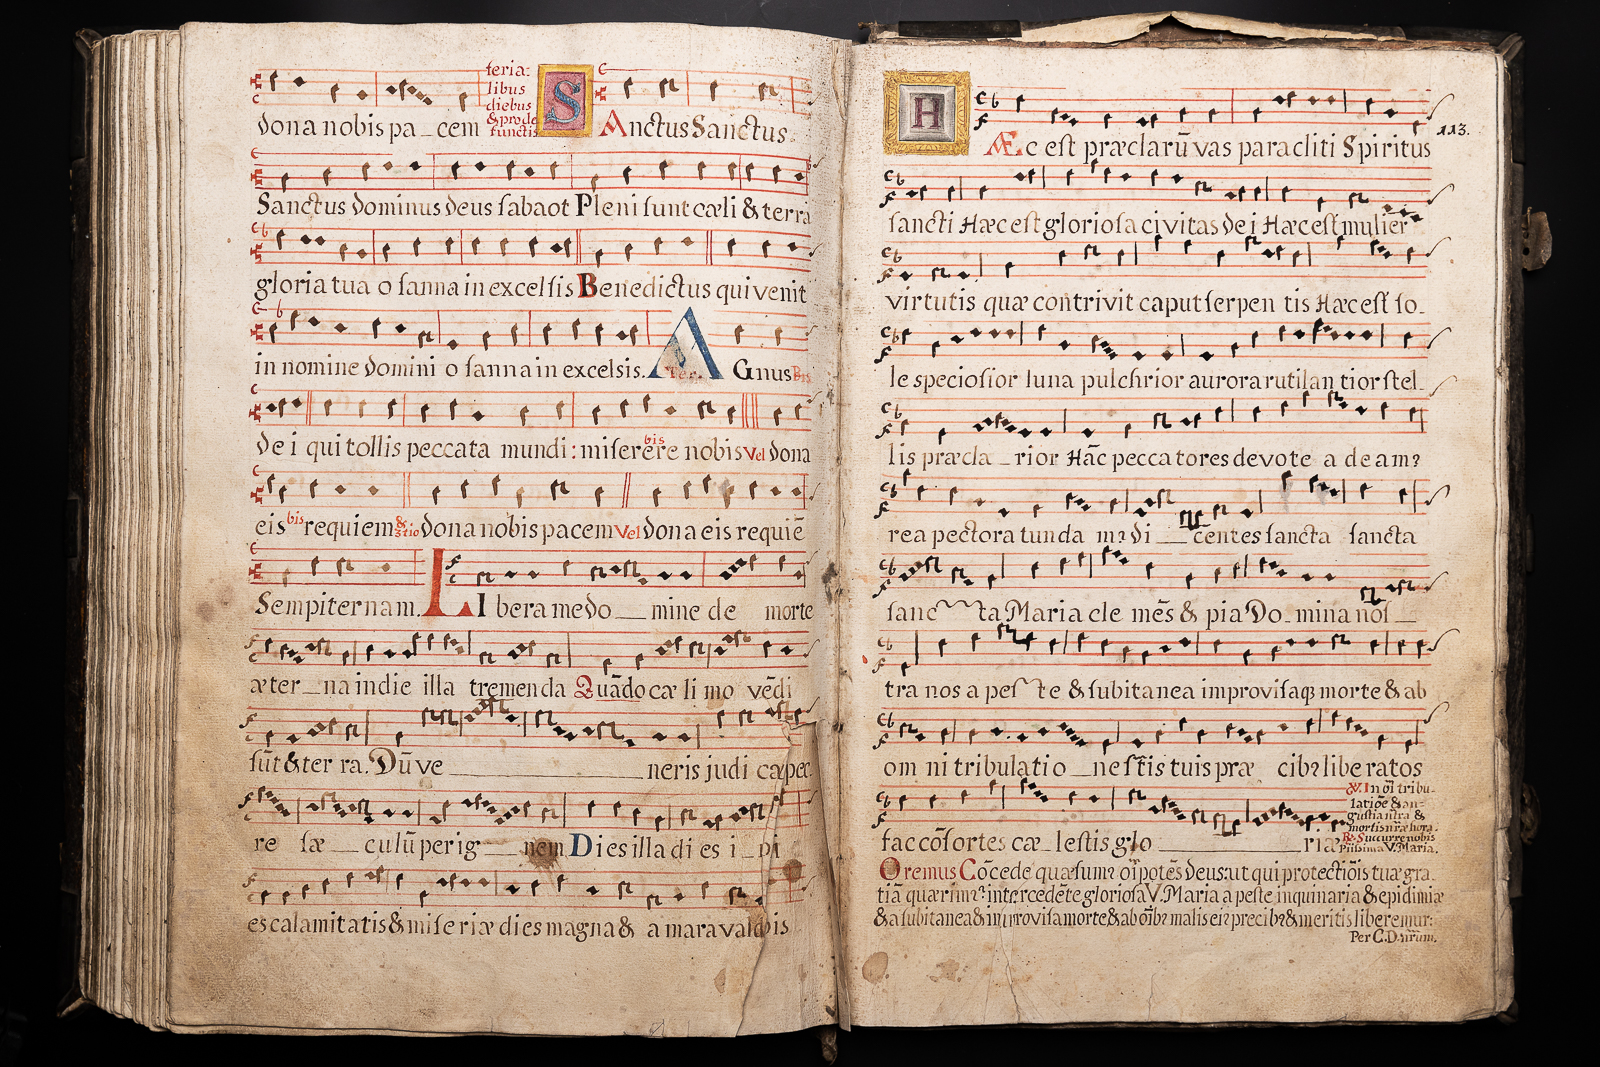 dona nobis pa_cem
feria:
libus
diebus
& pro de
functis
SAnctus Sanctus.
Sanctus dominus deus sabaot Pleni sunt cæli & terra
gloria tua o sanna in excelsis Benedictus qui venit
in nomine domini o sanna in excelsis. A Gnus Bis
de i qui tollis peccata mundi: miserere bis nobis Vel dona
eis bis requiem & 3tio dona nobis pacem Vel dona eis requiē
Sempiternam. LI bera me do__mine de morte
æter_na in die illa tremenda Quādo cæ li mo vēdi
sūt & ter ra. Dū ve____neris judi ca pec
re sæ__culū per ig__nem Dies illa di es i_pi
es calamitatis & mise riæ dies magna & amara valde is
113.
HÆc est præclarū vas paracliti Spiritus
sancti Hæc est gloriosa civitas dei Hæc est mulier
virtutis quæ contrivit caput serpen tis Hæc est so_
le speciosior luna pulchrior aurora rutilan tior stel_
lis præcla_rior Hāc peccatores devote a de am?
rea pectora tunda m? di__centes sancta sancta
sanc ta Maria cle mēs & pia Do_mina nos__
tra nos a pes te & subitanea improvisaq; morte & ab
om ni tribulatio_ne est̄is tuis præ cib? libe ratos
fac cōsortes cæ_lestis glo____riæ
V. In oī tribu-
latiōe & an-
gustia nr̄a &
mortis nr̄æ hora.
R. Sucurre nobis
Piisima V. Maria.
Oremus Cōcede quæsum? oīpotēs deus: ut qui protectiōis tuæ gra_
tiā quærim?: intercedēte gloriosa V. Maria a peste inquinaria & epidimiæ
& a subitanea & improvisa morte & ab oīb? malis ei? precib? & meritis liberemur:
Per C. D. nr̄um.